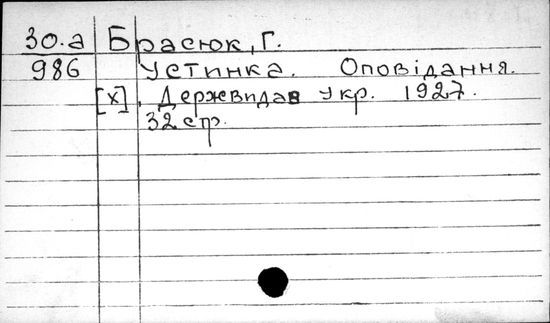 30.а Брасюк, Г.
986 Устинка. Оповідання.
[х], Держвидав Укр. 1927.
32 стр.